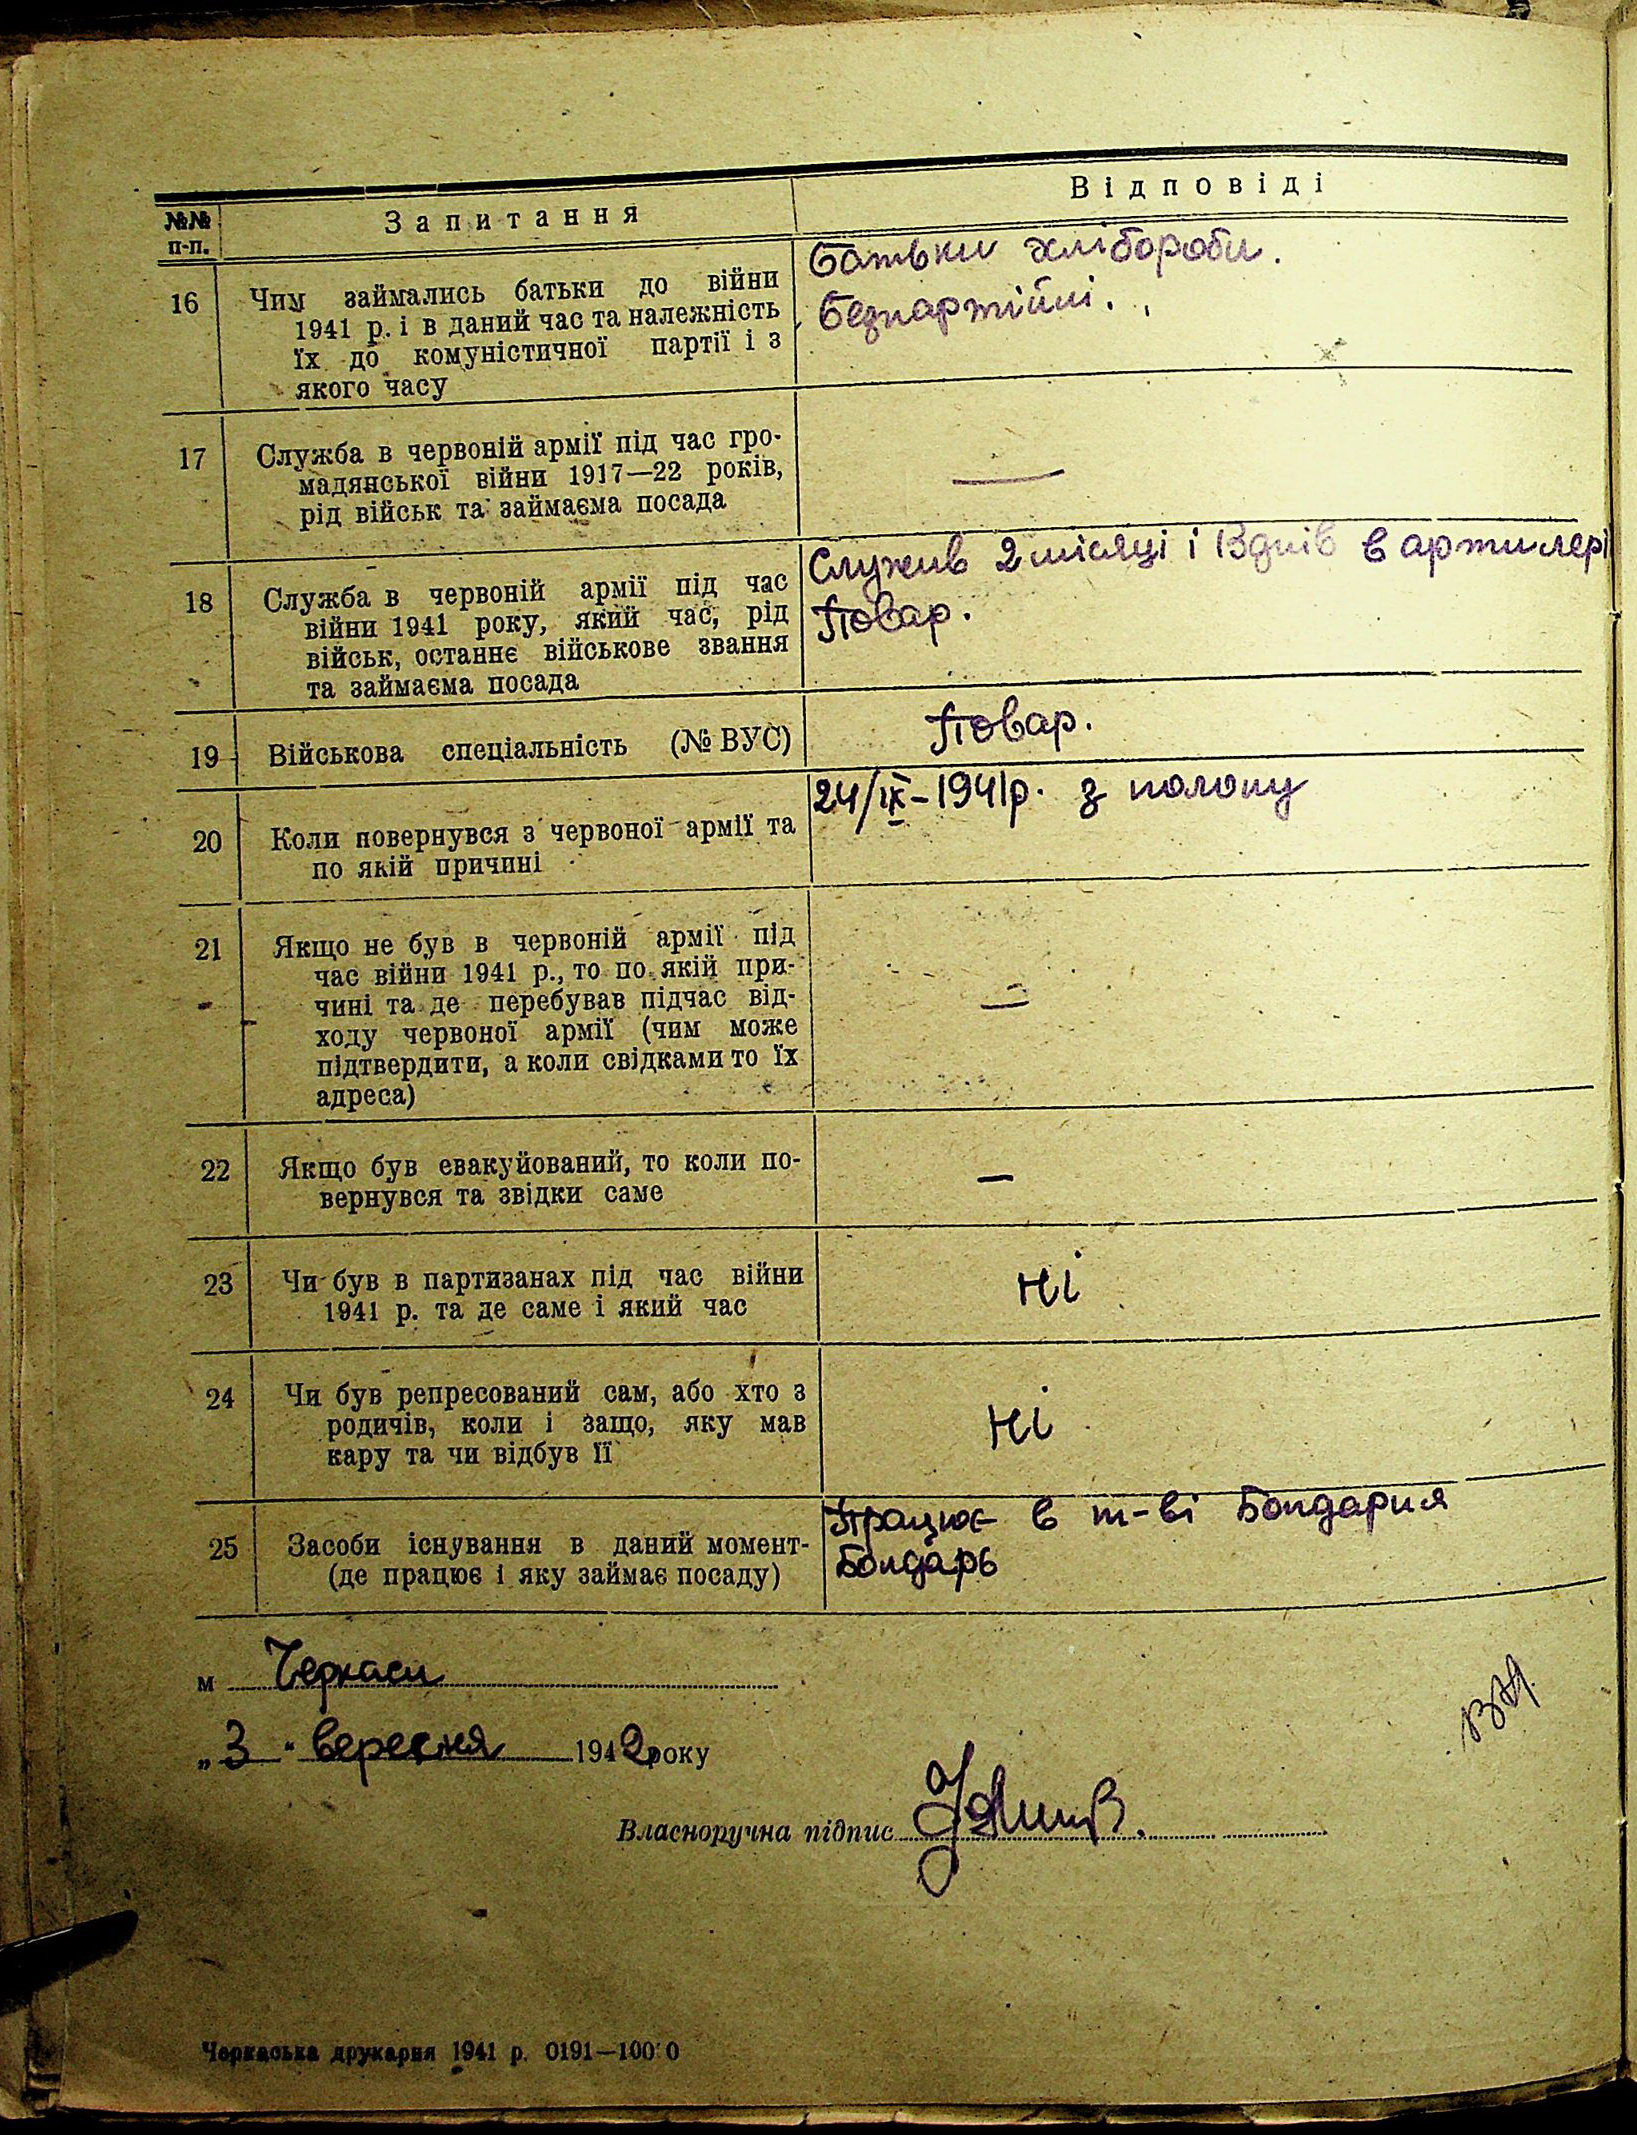 №№ п-п.
Запитання
Відповіді
16
Чим займались батьки до війни
1941 р. і в даний час та належність
їх до комуністичної партії і з
якого часу
Батьки хлібороби.
Безпартійні.
17
Служба в червоній армії під час гро-
мадянської війни 1917—22 років,
рід військ та займаєма посада
—
18
Служба в червоній армії під час
війни 1941 року, який час, рід
військ, останнє військове звання
та займаєма посада
Служив 2 місяці і 13 днів в артилері
Повар.
19
Військова спеціальність (№ ВУС)
Повар.
20
Коли повернувся з червоної армії та
по якій причині
24/IX-1941р. з полону
21
Якщо не був в червоній армії під
час війни 1941 р., то по якій при-
чині та де перебував підчас від-
ходу червоної армії (чим може
підтвердити, а коли свідками то їх
адреса)
—
22
Якщо був евакуйований, то коли по-
вернувся та звідки саме
—
23
Чи був в партизанах під час війни
1941 р. та де саме і який час
Ні
24
Чи був репресований сам, або хто з
родичів, коли і защо, яку мав
кару та чи відбув її
Ні
25
Засоби існування в даний момент-
(де працює і яку займає посаду)
Працює в т-ві Бондарня
Бондарь
м Черкаси
„3" вересня 1942 року
Власноручна підпис
Черкаська друкарня 1941 р. 0191—100 0